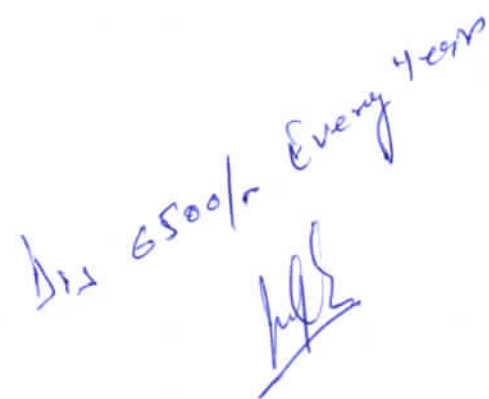 Dis 6500/- Every Year